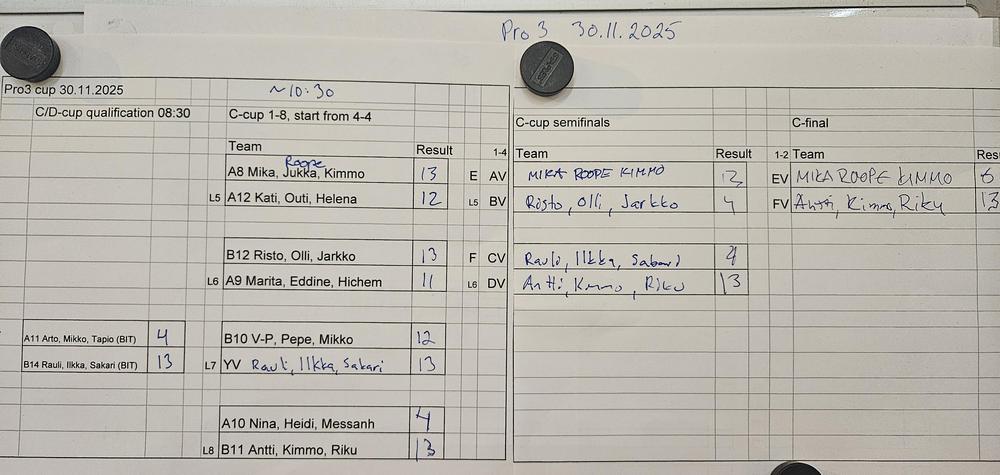 Pro 3 30.11.2025
Pro3 cup 30.11.2025
~10:30
C/D-cup qualification 08:30
C-cup 1-8, start from 4-4
Team Result
Roope
A8 Mika, Jukka, Kimmo 13
L5 A12 Kati, Outi, Helena 12
B12 Risto, Olli, Jarkko 13
L6 A9 Marita, Eddine, Hichem 11
A11 Arto, Mikko, Tapio (BIT) 4
B14 Rauli, Ilkka, Sakari (BIT) 13
B10 V-P, Pepe, Mikko 12
L7 YV Rauli, Ilkka, Sakari 13
A10 Nina, Heidi, Messanh 4
L8 B11 Antti, Kimmo, Riku 13
C-cup semifinals
1-4 Team Result
E AV MIKA ROOPE KIMMO 13
L5 BV Risto, Olli, Jarkko 4
F CV Rauli, Ilkka, Sakari
L6 DV Antti, Kimmo, Riku 13
C-final
1-2 Team Res
EV MIKA ROOPE KIMMO 6
FV Antti, Kimmo, Riku 13